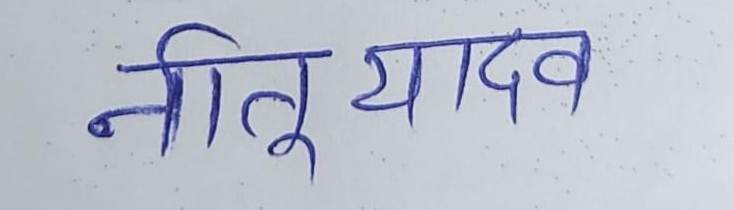 नीतू यादव